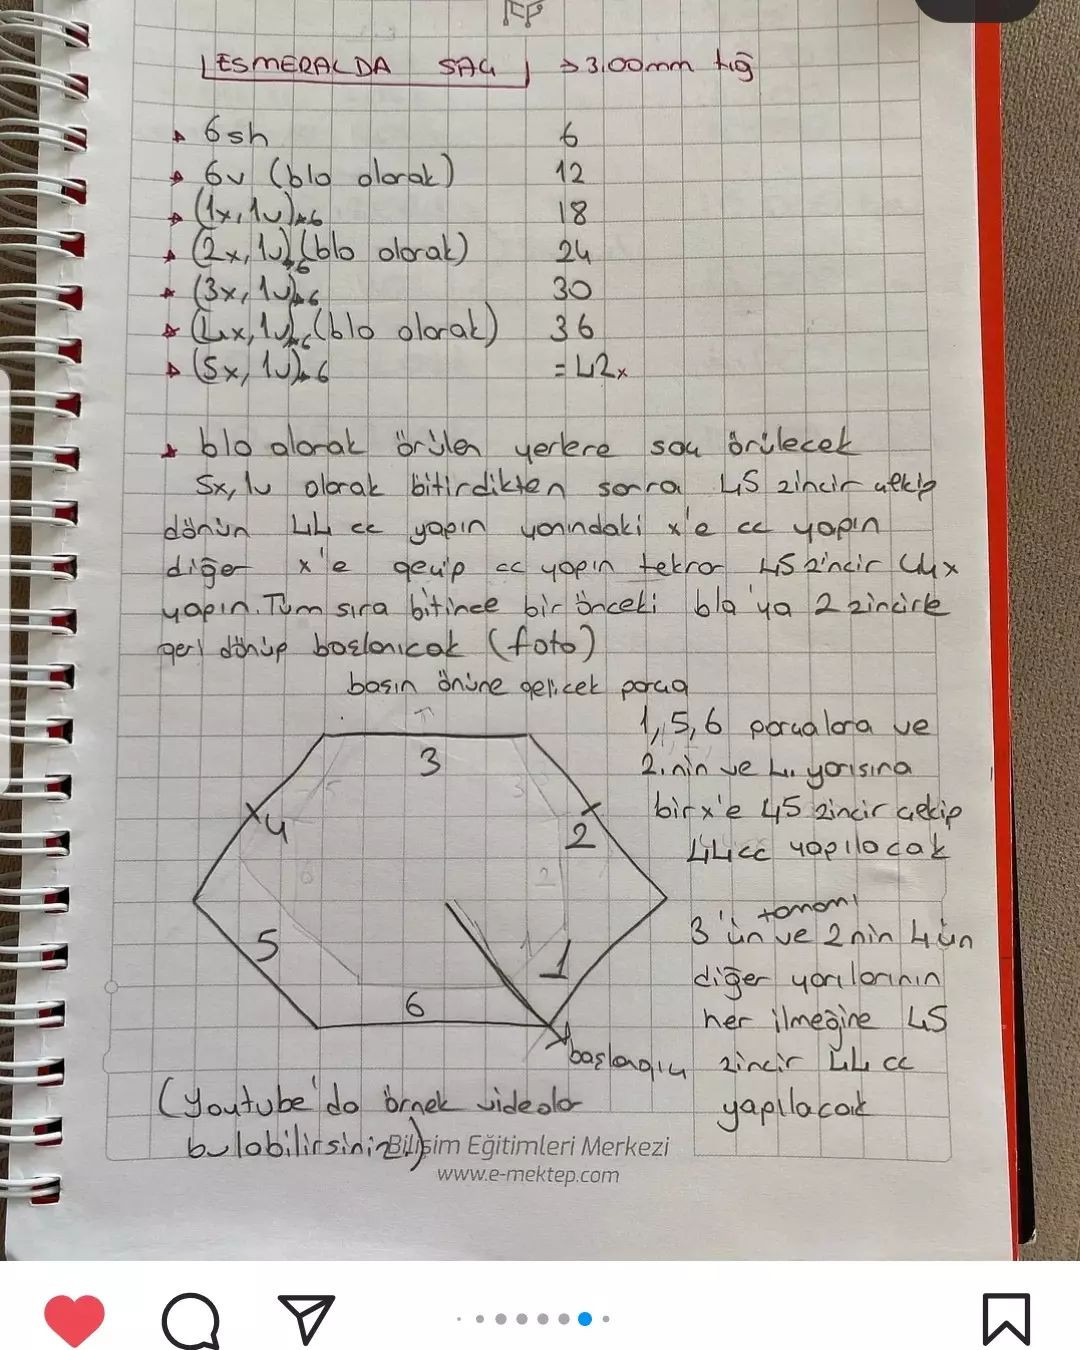 ESMERALDA SAÇ → 3.00mm tığ
6sh 6
6v (blo olarak) 12
(1x, 1v)*6 18
(2x, 1v)*6 (blo olarak) 24
(3x, 1v)*6 30
(4x, 1v)*6 (blo olarak) 36
(5x, 1v)*6 =42x
blo olarak örülen yerlere saç örülecek
5x, 1v olarak bitirdikten sonra 45 zincir çekip
dönün 44 cc yapın yanındaki x'e cc yapın
diğer x'e geçip cc yapın tekrar 45 zincir
yapın. Tüm sıra bitince bir önceki bla'ya 2 zincirle
geri dönüp başlanıcak (foto)
başın önüne gelicek parça
3
4
2
5
1
6
başlangıç
1, 5, 6 parçalara ve
2.nin ve 4. yarısına
bir x'e 45 zincir çekip
44cc yapılacak
tamamı
3'ün ve 2nin 4ün
diğer yarılarının
her ilmeğine 45
zincir 44 cc
yapılacak
(Youtube'da örnek videolar
bulabilirsiniz.)
Bilişim Eğitimleri Merkezi
www.e-mektep.com